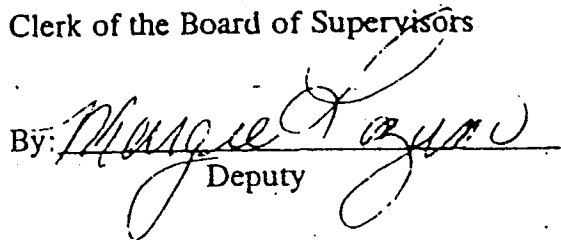 Clerk of the Board of Supervisors
By: Margie
Deputy